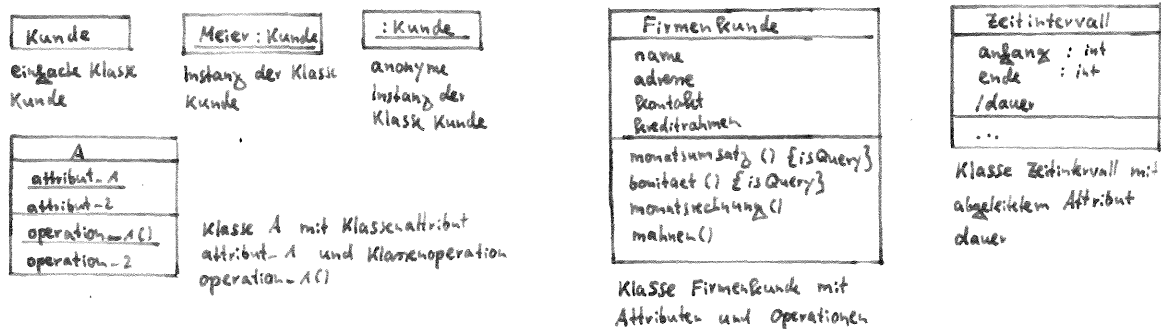 Kunde
einfache Klasse
Kunde
Meier : Kunde
Instanz der Klasse
Kunde
: Kunde
anonyme
Instanz der
Klasse Kunde
A
attribut_1
attribut_2
operation_1()
operation_2
Klasse A mit Klassenattribut
attribut_1 und Klassenoperation
operation_1()
Firmenkunde
name
adresse
kontakt
kreditrahmen
monatsumsatz () {isQuery}
bonitaet () {isQuery}
monatsrechnung ()
mahnen ()
Klasse Firmenkunde mit
Attributen und Operationen
Zeitintervall
anfang : int
ende : int
/dauer
...
Klasse Zeitintervall mit
abgeleitetem Attribut
dauer